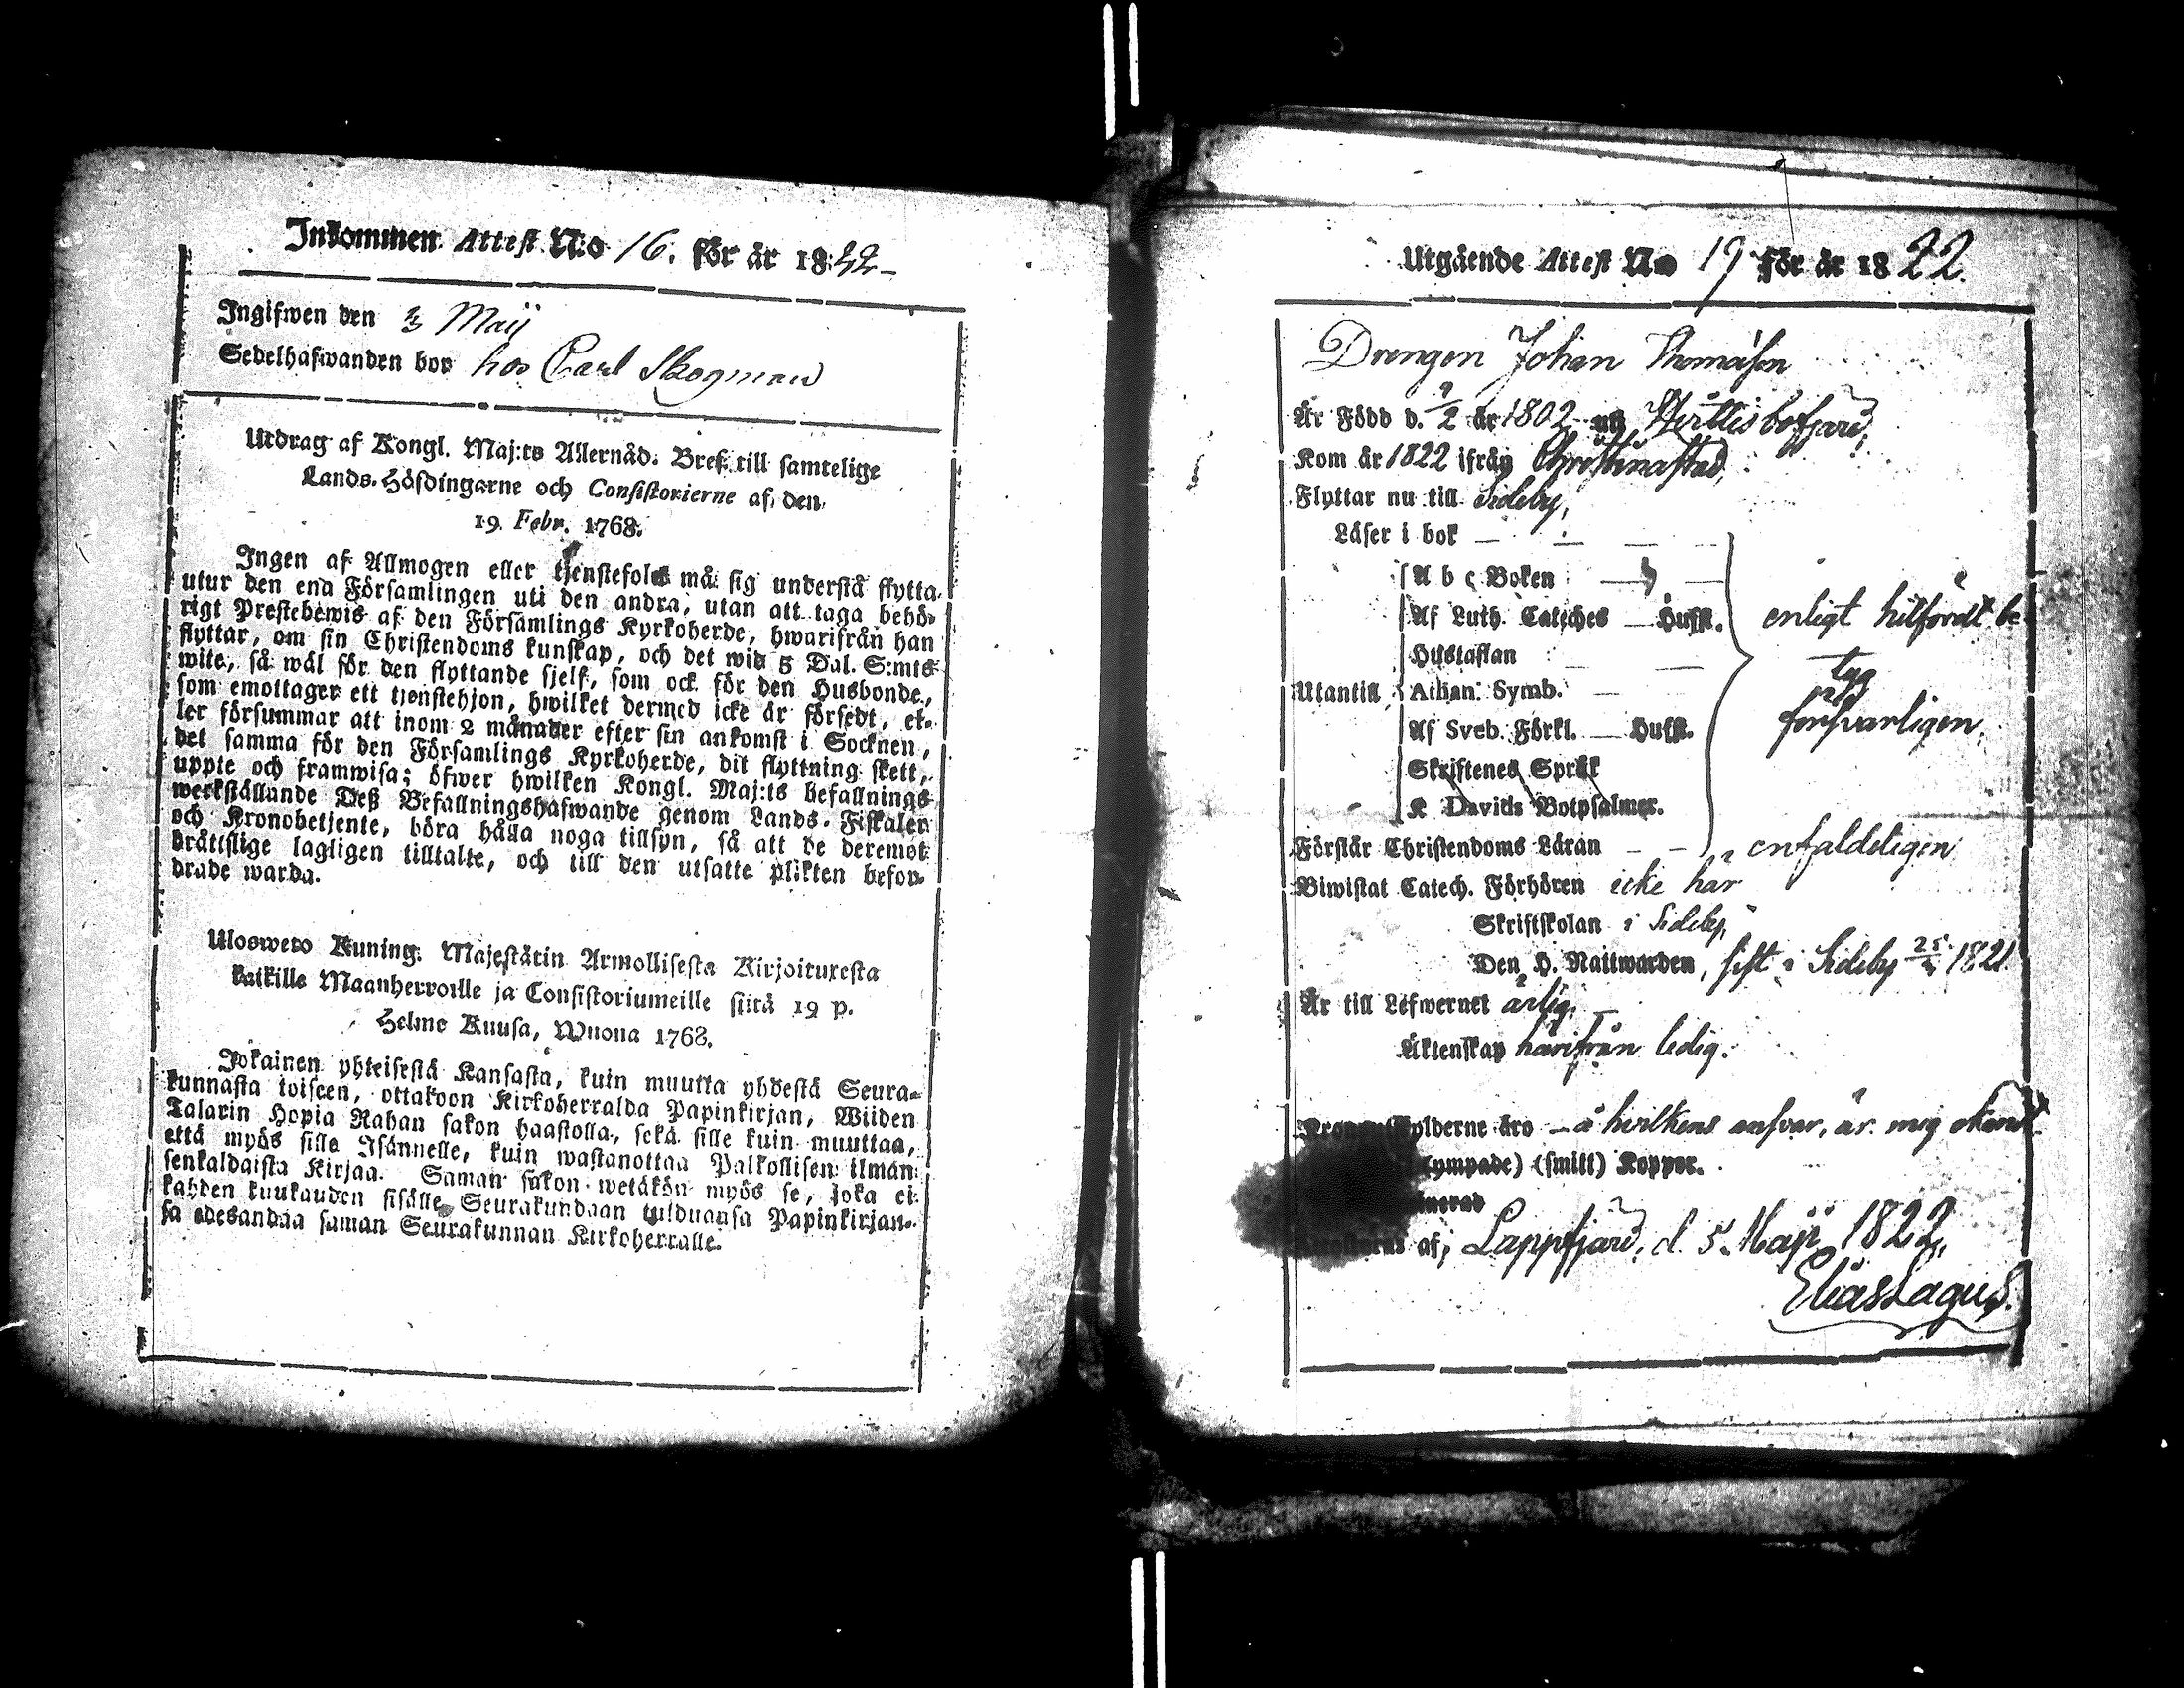 Inkommen Attest N:o 16. för år 1822
Ingifwen den Maij
Sedelhafwanden bor hos Carl Skogman
Utdrag af Kongl. Maj:ts Allernåd. Bref till samtelige
Lands-Höfdingarne och Consistorierne af den
19 Febr. 1768.
Ingen af Allmogen eller tjenstefolk må sig understå flytta
utur den ena Församlingen uti den andra, utan att taga behö-
rigt Prestebewis af den Församlings Kyrkoherde, hwarifrån han
flyttar, om sin Christendoms kunskap, och det wid 5 Dal. S:mts
wite, så wäl för den flyttande sjelf, som ock för den Husbonde,
som emottager ett tjenstehjon, hwilket dermed icke är försedt, el-
ler försummar att inom 2 månader efter sin ankomst i Socknen,
det samma för den Församlings Kyrkoherde, dit flyttning skett,
uppte och framwisa; öfwer hwilken Kongl. Maj:ts befallnings
werkställande Deß Befallningshafwande genom Lands-Fiskaler
och Kronobetjente, böra hålla noga tillsyn, så att de deremot
bråttslige lagligen tilltalte, och till den utsatte plikten befor-
drade warda.
Ulosweto Kuning. Majestätin Armollisesta Kirjoituxesta
kaikille Maanherroille ja Consistoriumeille siitä 19 p.
Helme Kuusa, Wuona 1768.
Jokainen yhteisestä Kansasta, kuin muutta yhdestä Seura-
kunnasta toiseen, ottakoon Kirkoherralda Papinkirjan, Wiiden
Talarin Hopia Rahan sakon haastolla, sekä sille kuin muuttaa,
että myös sille Isännelle, kuin wastanottaa Palkollisen ilman
senkaldaista Kirjaa. Saman sakon wetäkön myös se, joka ei
kahden kuukauden sisälle Seurakundaan tulduansa Papinkirjan-
sa edesandaa saman Seurakunnan Kirkoherralle.
Utgående Attest No 17 för år 1822.
Drengen Johan Thomasson
Är Född d. 9/2 år 1802 uti
Kom år 1822 ifrån Christinastad,
Flyttar nu till Sideby,
Läser i bok
A b c Boken
Af Luth. Cateches — Hufst. enligt hitfördt be-
Hustaflan tyg
Utantill Athan. Symb.
Af Sveb. Förkl. — Hufst. försvarligen.
Skriftenes Språk
K Davids Botpsalmer.
Förstår Christendoms Läran enfaldeligen
Biwistat Catech. Förhören icke här
Skriftskolan i Sideby,
Den H. Nattwarden, sist i Sideby 1821
Är till Lefwernet ärlig,
Äktenskap härifrån ledig.
äro — å hvilkens ansvar, är mig okändt
(ympade) (smitt) Koppor.
af, Lappfjärd, d. 5. Maji 1822,
Elias Lagus.